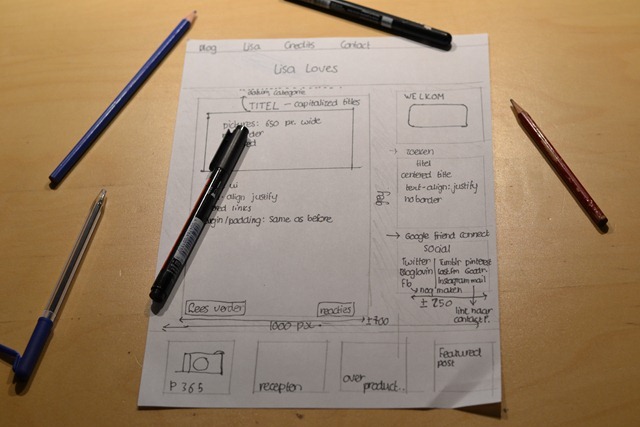 Blog Lisa Credits Contact
Lisa Loves
categorie
TITEL - capitalized titles
pictures: 650 px wide
der
d
w
align justify
ed links
gin/padding: same as before
Lees verder
reacties
1000 px
± 700
WELKOM
→ zoeken
titel
centered title
text-align: justify
no border
→ Google friend connect
social
Twitter
Bloglovin
Fb
→ nog maken
Tumblr pinterest
lastfm Goodr.
Instagram mail
± 250
link naar
contact p.
P 365
recepten
over
product..
Featured
post